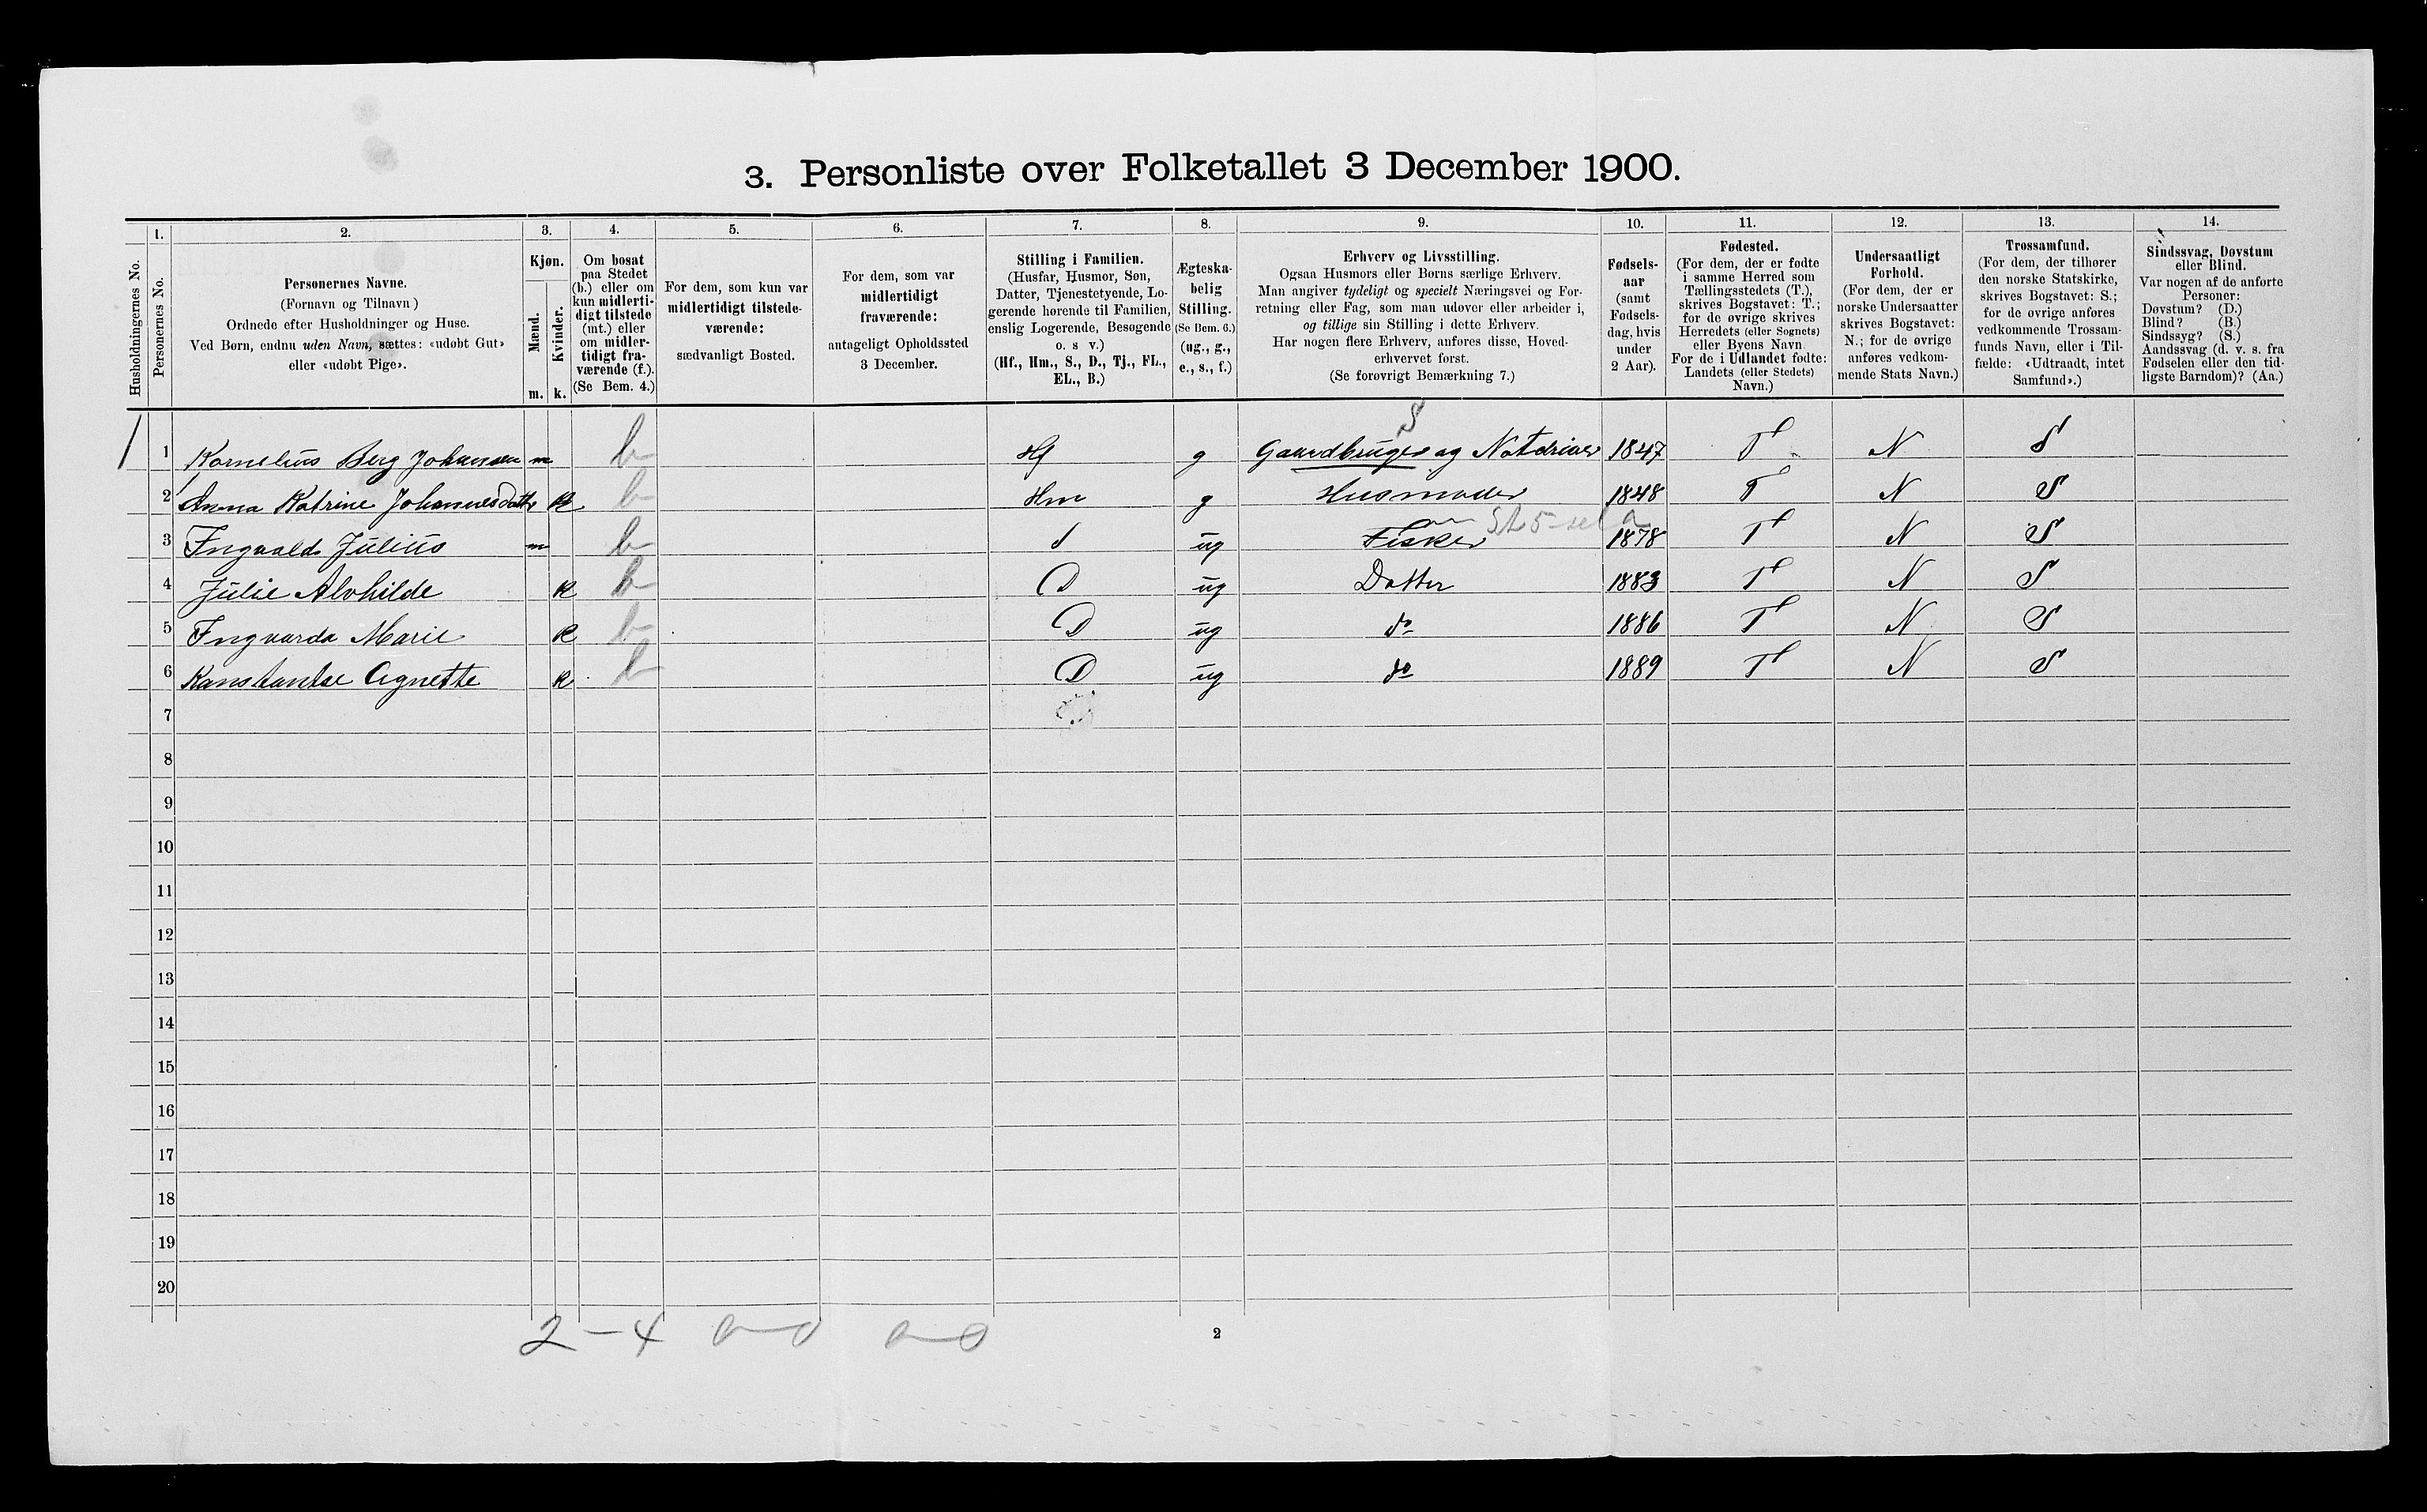 3. Personliste over Folketallet 3 December 1900.
1. 2. 3. 4. 5. 6. 7. 8. 9. 10. 11. 12. 13. 14.
Husholdningernes No.
Personernes No.
Personernes Navne.
(Fornavn og Tilnavn)
Ordnede efter Husholdninger og Huse.
Ved Børn, endnu uden Navn, sættes: «udøbt Gut»
eller «udøbt Pige».
Kjøn.
Mænd.
Kvinder.
m. k.
Om bosat
paa Stedet
(b.) eller om
kun midlerti-
digt tilstede
(mt.) eller
om midler-
tidigt fra-
værende (f.).
(Se Bem. 4.)
For dem, som kun var
midlertidigt tilstede-
værende:
sædvanligt Bosted.
For dem, som var
midlertidigt
fraværende:
antageligt Opholdssted
3 December.
Stilling i Familien.
(Husfar, Husmor, Søn,
Datter, Tjenestetyende, Lo-
gerende hørende til Familien,
enslig Logerende, Besøgende
o. s v.)
(Hf., Hm., S., D., Tj., FL.,
EL., B.)
Ægteska-
belig
Stilling.
(Se Bem. 6.)
(ug., g.,
e., s., f.)
Erhverv og Livsstilling.
Ogsaa Husmors eller Børns særlige Erhverv.
Man angiver tydeligt og specielt Næringsvei og For-
retning eller Fag, som man udøver eller arbeider i,
og tillige sin Stilling i dette Erhverv.
Har nogen flere Erhverv, anføres disse, Hoved-
erhvervet først.
(Se forøvrigt Bemærkning 7.)
Fødsels-
aar
(samt
Fødsels-
dag, hvis
under
2 Aar).
Fødested.
(For dem, der er fødte
i samme Herred som
Tællingsstedets (T.),
skrives Bogstavet: T.;
for de øvrige skrives
Herredets (eller Sognets)
eller Byens Navn
For de i Udlandet fødte:
Landets (eller Stedets)
Navn.)
Undersaatligt
Forhold.
(For dem, der er
norske Undersaatter
skrives Bogstavet:
N.; for de øvrige
anføres vedkom-
mende Stats Navn.)
Trossamfund.
(For dem, der tilhører
den norske Statskirke,
skrives Bogstavet: S.;
for de øvrige anføres
vedkommende Trossam-
funds Navn, eller i Til-
fælde: «Udtraadt, intet
Samfund».)
Sindssvag, Døvstum
eller Blind.
Var nogen af de anførte
Personer:
Døvstum? (D.)
Blind? (B.)
Sindssyg? (S.)
Aandssvag (d. v. s. fra
Fødselen eller den tid-
ligste Barndom)? (Aa.)
S
1 1 Kornelius Berg Johansen m b Hf g Gaardbruger og Notdriver 1847 T N S
2 Anna Katrine Johannesdatter k b Hm g Husmoder 1848 T N S
3 Ingvald Julius m b S ug Fisker 1878 T N S
4 Julie Alvhilde k b D ug Datter 1883 T N S
5 Ingvarda Marie k b D ug do 1886 T N S
6 Kanstantse Agnette k b D ug do 1889 T N S
7
8
9
10
11
12
13
14
15
16
17
18
19
20
2 – 4 0–0 0–0
2